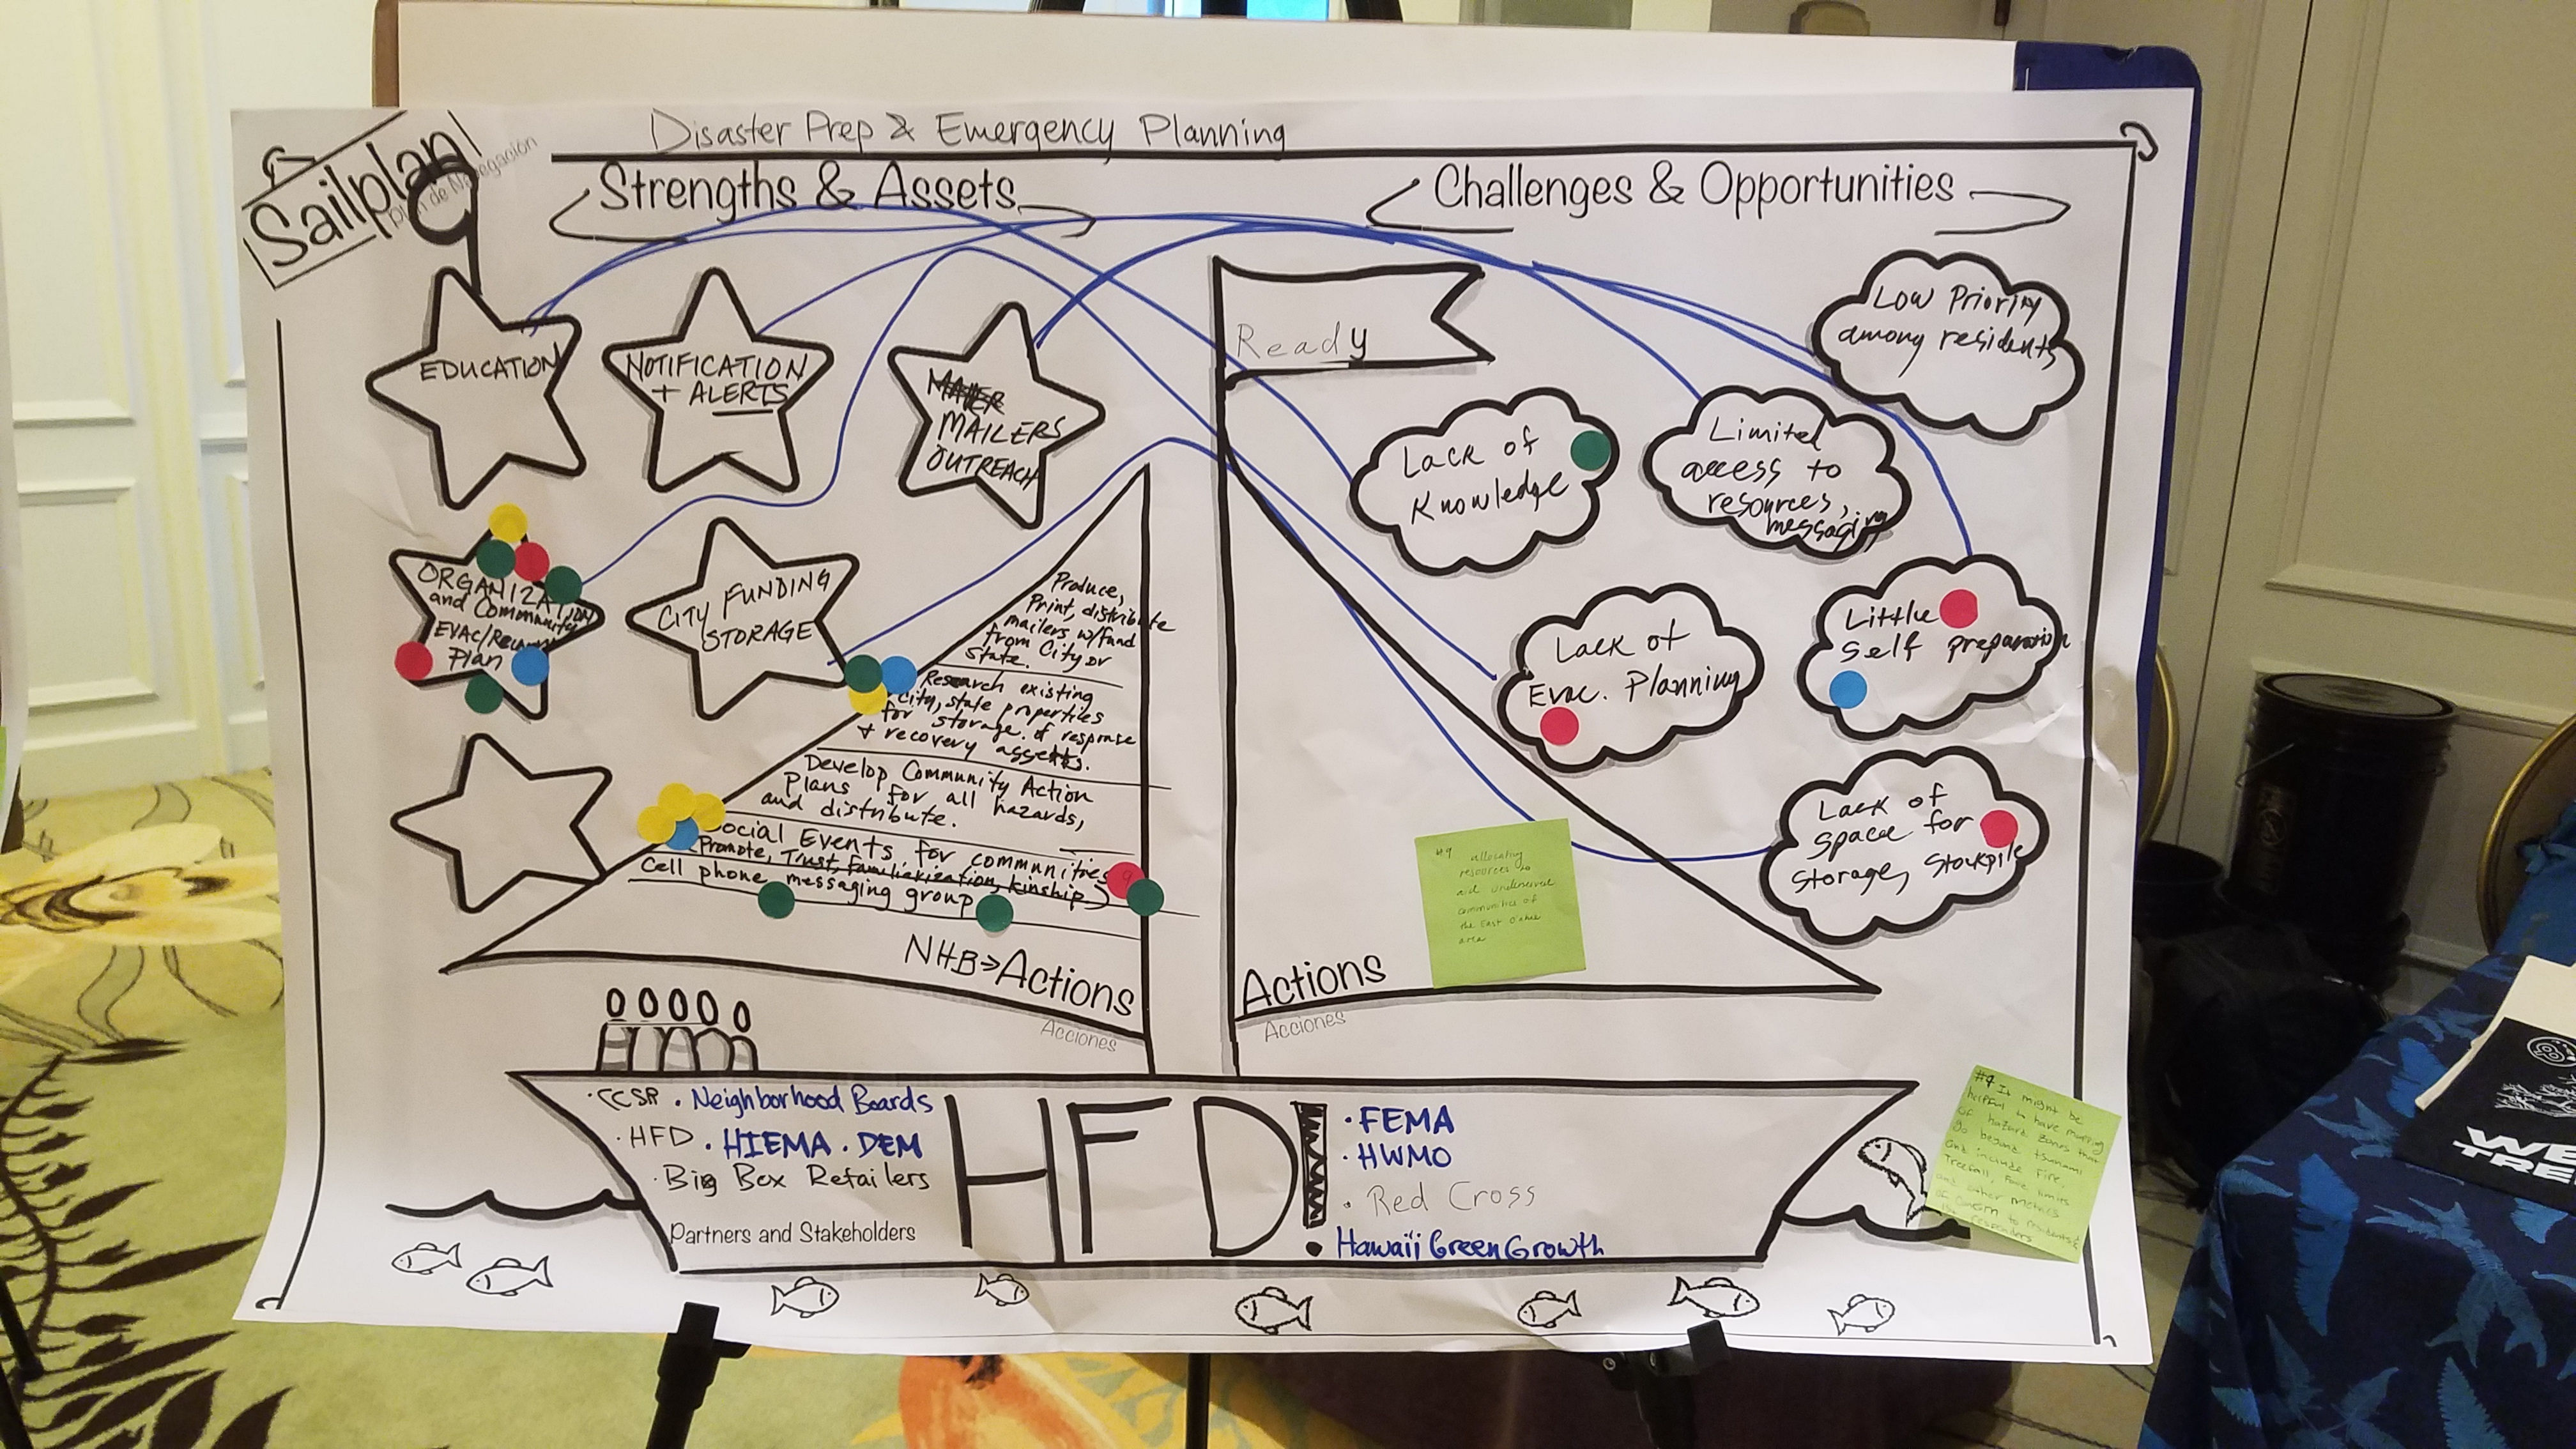 Disaster Prep & Emergency Planning
Sailplan
Plan de Navegación
Strengths & Assets
Challenges & Opportunities
EDUCATION
NOTIFICATION
+ ALERTS
MAILERS
OUTREACH
ORGANIZATION
and Community
EVAC/
Plan
CITY FUNDING
STORAGE
Ready
Low Priority
among residents
Lack of
Knowledge
Limited
access to
resources,
messaging
Lack of
Evac. Planning
Little
Self preparation
Lack of
space for
Storage, Stockpile
Produce,
Print, distribute
mailers w/fund
from City or
State.
Research existing
City, state properties
for storage of response
+ recovery assets.
Develop Community Action
Plans for all hazards,
and distribute.
Social Events for communities
Promote, Trust, Familiarization, kinship)
Cell phone messaging group
NHB → Actions
Acciones
Actions
Acciones
#9 allocating
resources to
aid underserved
communities of
the East O'ahu
area
· CCSR · Neighborhood Boards
· HFD · HIEMA · DEM
· Big Box Retailers
Partners and Stakeholders
HFD!
· FEMA
· HWMO
· Red Cross
· Hawaii Green Growth
#9 It might be
helpful to have mapping
of hazard zones that
go beyond tsunami
and include Fire
Treefall,
and other metrics
of concern to residents &
1st responders
WE
TRE